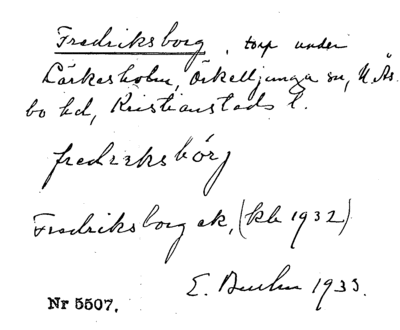 Fredriksborg, torp under
Lärkesholm, Örkelljunga sn, N. Ås-
bo hd, Kristianstads l.
fredrəksbórj
Fredriksborg ek, (kb 1932)
E. 1933.
Nr 5507.